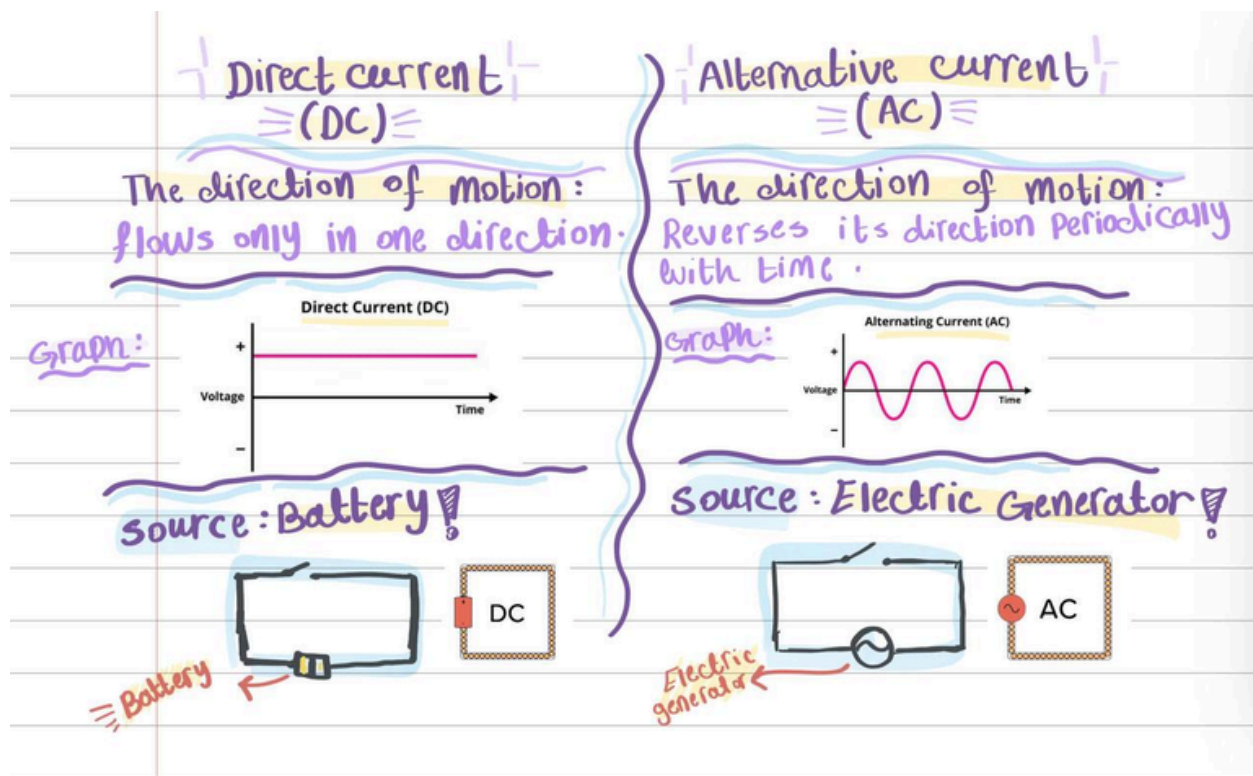 Direct current
(DC)
The direction of motion:
flows only in one direction.
Graph:
Direct Current (DC)
+
Voltage
Time
−
Source: Battery!
DC
Battery
Alternative current
(AC)
The direction of motion:
Reverses its direction Periodically
with time.
Graph:
Alternating Current (AC)
+
Voltage
Time
−
Source: Electric Generator!
AC
Electric
generator